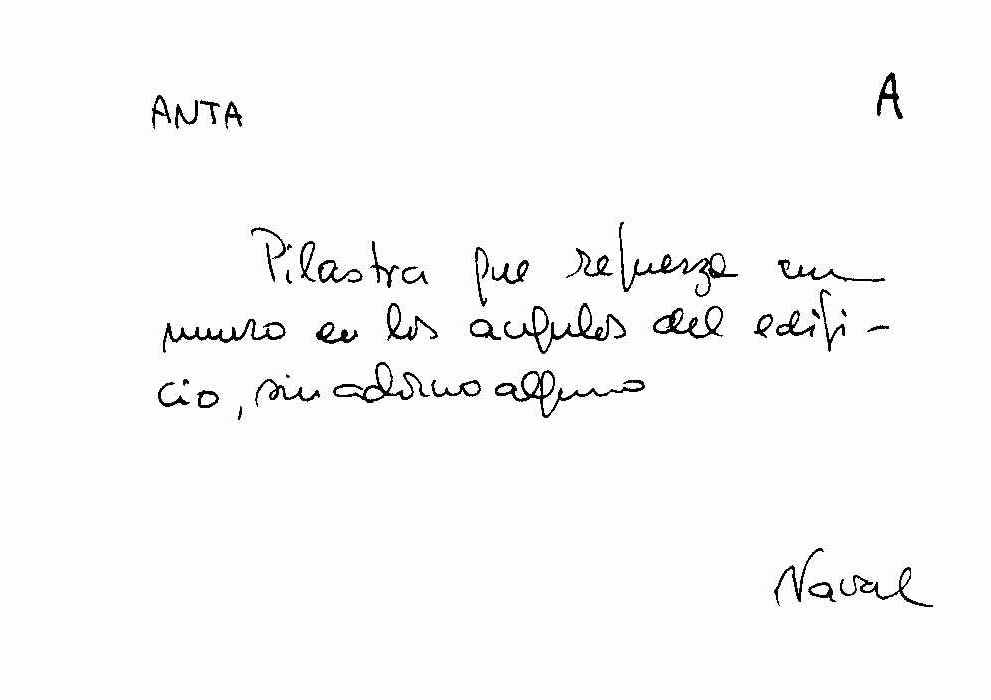 ANTA A
Pilastra que refuerza un
muro en los ángulos del edifi-
cio, sin adorno alguno
Naval